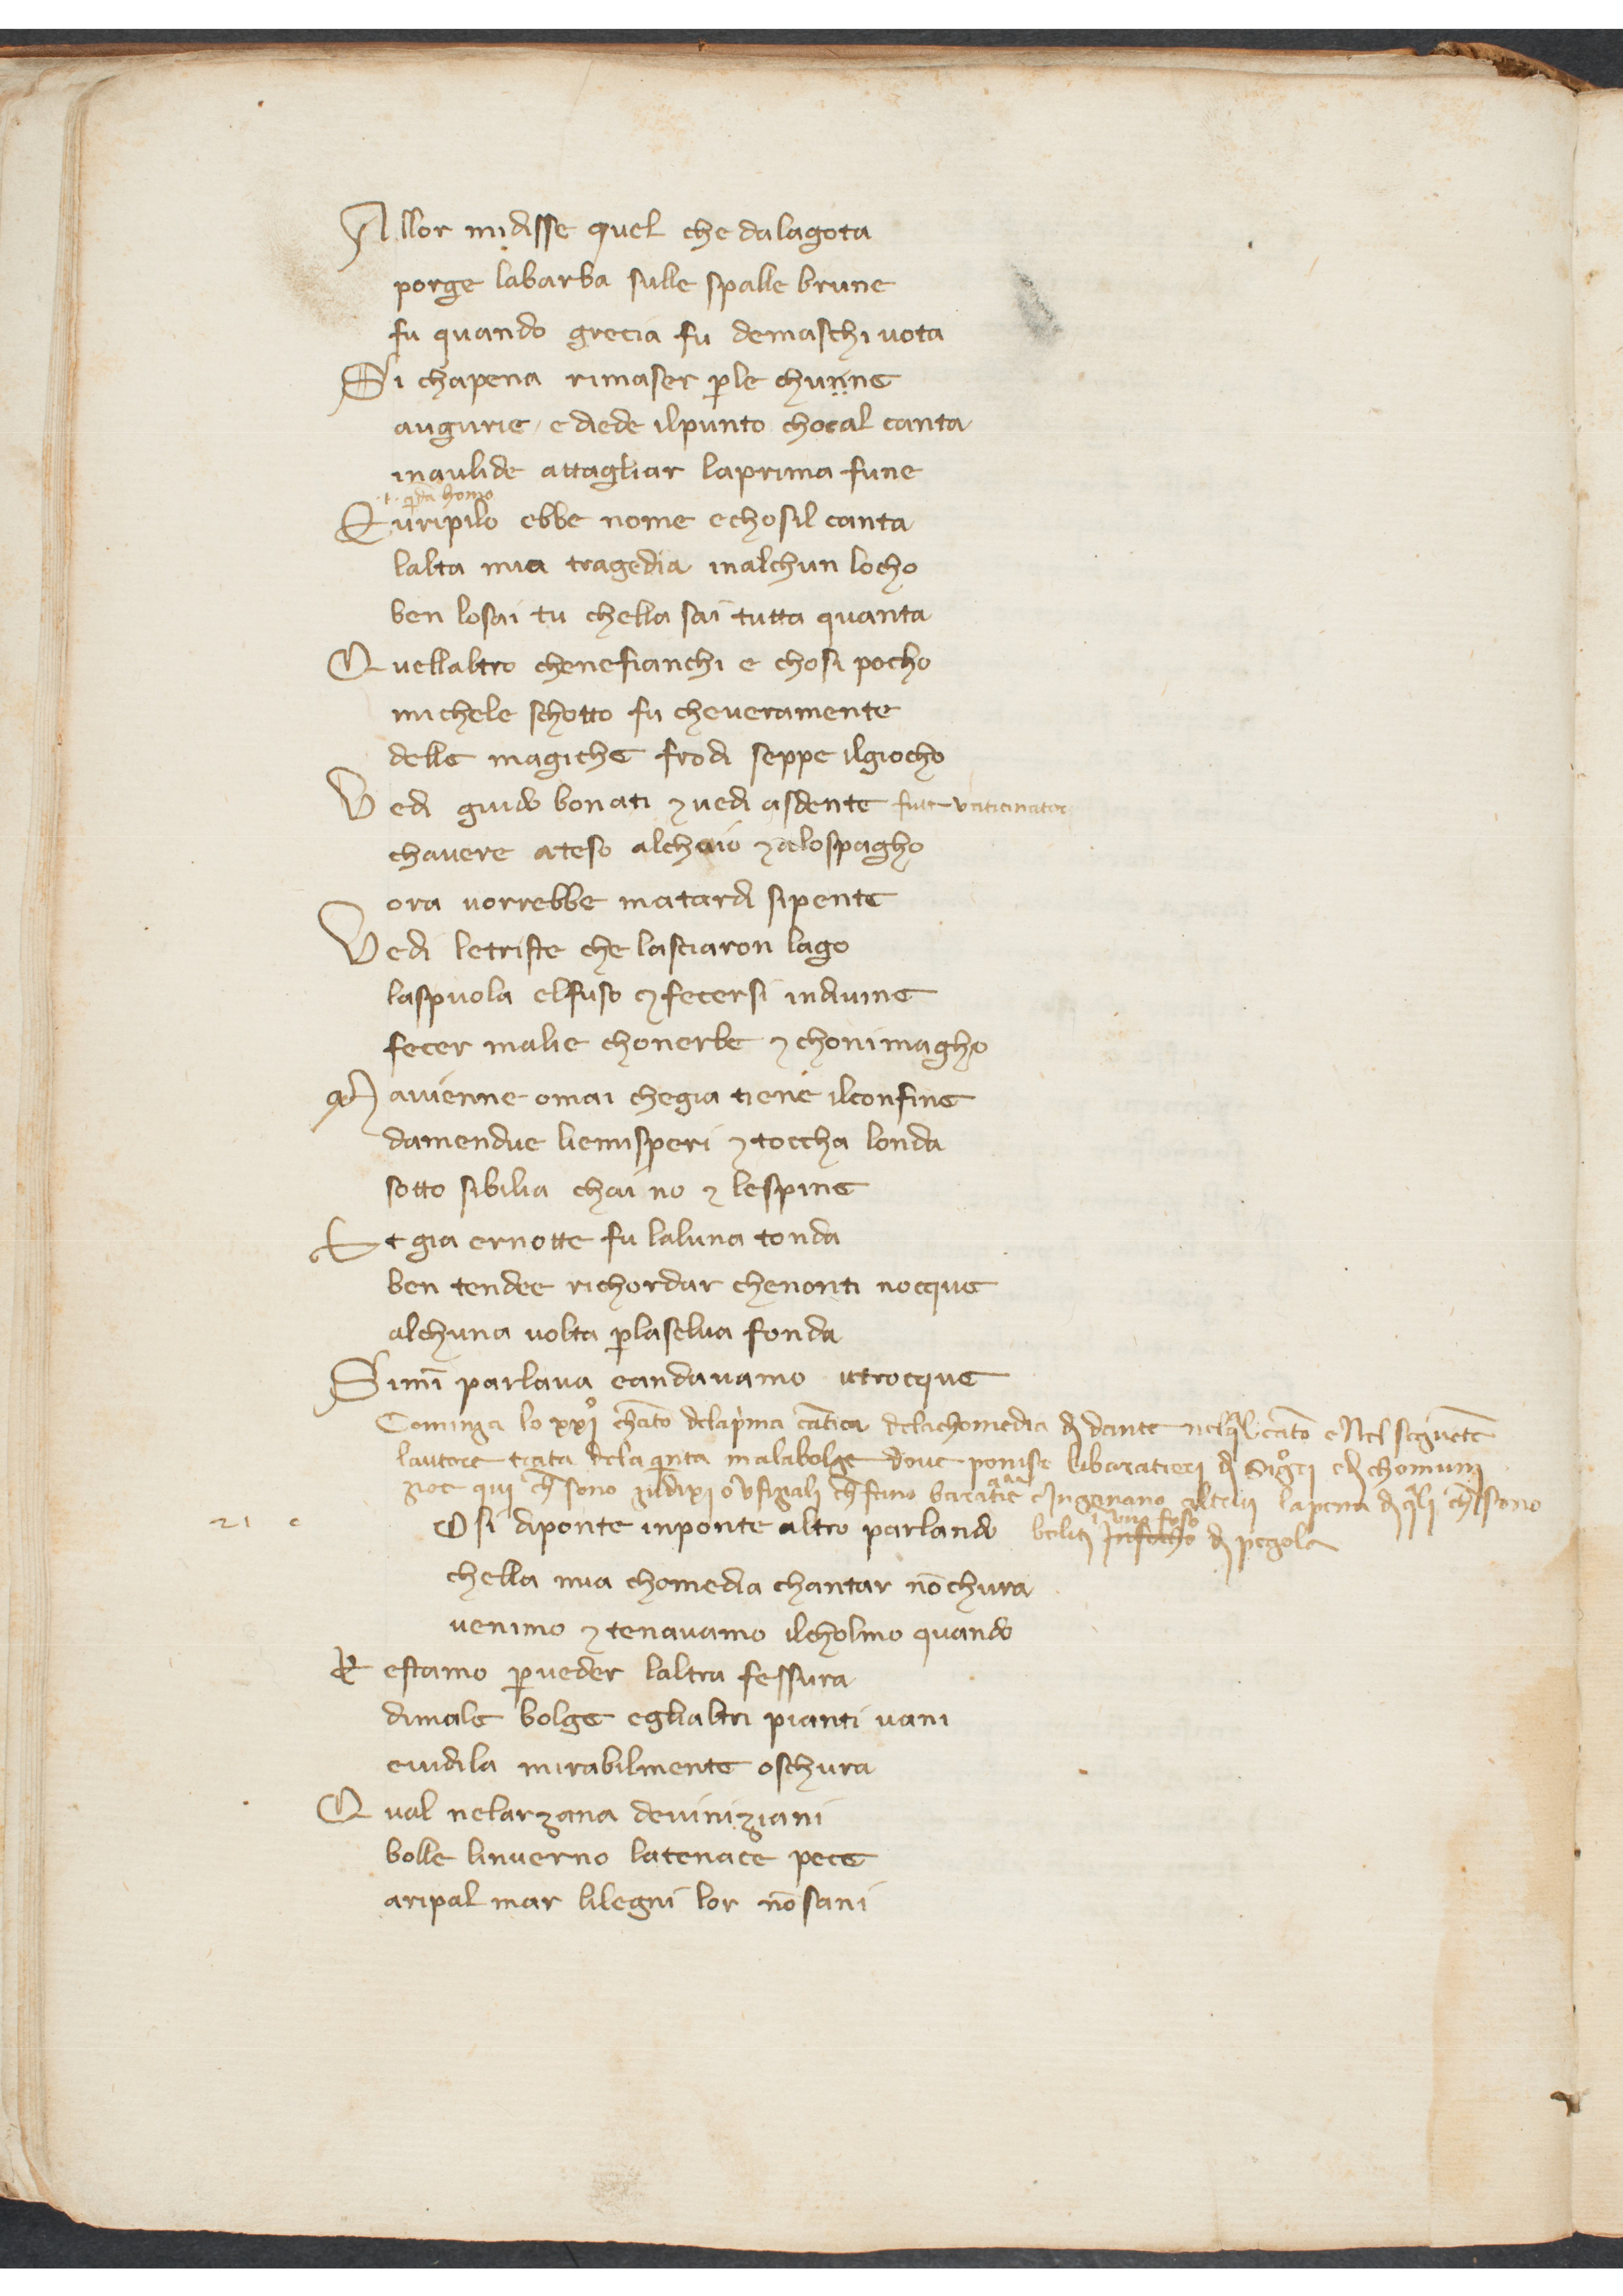 Allor midisse quel che dalagota
porge labarba sulle spalle brune
fu quando grecia fu demaschi uota
Si chapena rimaser ꝑle chunne
augurie / e diede ilpunto chocal canta
inaulide attagliar laprima fune
.t. qda homo
Euripilo ebbe nome echosil canta
lalta mia tragedia inalchun locho
ben losai tu chella sai tutta quanta
Quellaltro chenefianchi e chosi pocho
michele schotto fu cheueramente
delle magiche frodi seppe ilgiocho
Vedi guido bonati ⁊ uedi asdente fuit vaticinator
chauere ateso alchuio ⁊ alospagho
ora uorrebbe matardi sipente
Vedi letriste che lasciaron lago
laspuola elfuso ⁊ fecersi indiuine
fecer malie chonerbe ⁊ chonimagho
Mauienne omai chegia tiene ilconfine
damendue liemisperi ⁊ toccha londa
sotto sibilia chaino ⁊ lespine
Et gia ernotte fu laluna tonda
ben tendee richordar chenonti nocque
alchuna uolta ꝑlaselua fonda
Simi parlaua eandauamo introcque
Cominza lo xxjº chāto delapᵢma cātica delachomedia dj dante nelqᵃl cāto e Nel seguēte
lautore trata dela qᵢnta malabolge doue ponise libaratieri dj Sigºri e dj chomunj
zoe qui chē sono zudixi o ufizali chē fano barataᵉrie e Inganano altruj lapena dj qᵃli chē sono
21 c Osi diponte inponte altro parlando boliti ī una foso Infocho dj pegola
chella mia chomedia chantar nō chura
uenimo ⁊ tenauamo ilcholmo quando
Restamo ꝑueder laltra fessura
dimale bolge egli altri pianti uani
euidila mirabilmente oschura
Qual nelarzana deuiniziani
bolle linuerno latenace pece
aripalmar lilegni lor nō sani